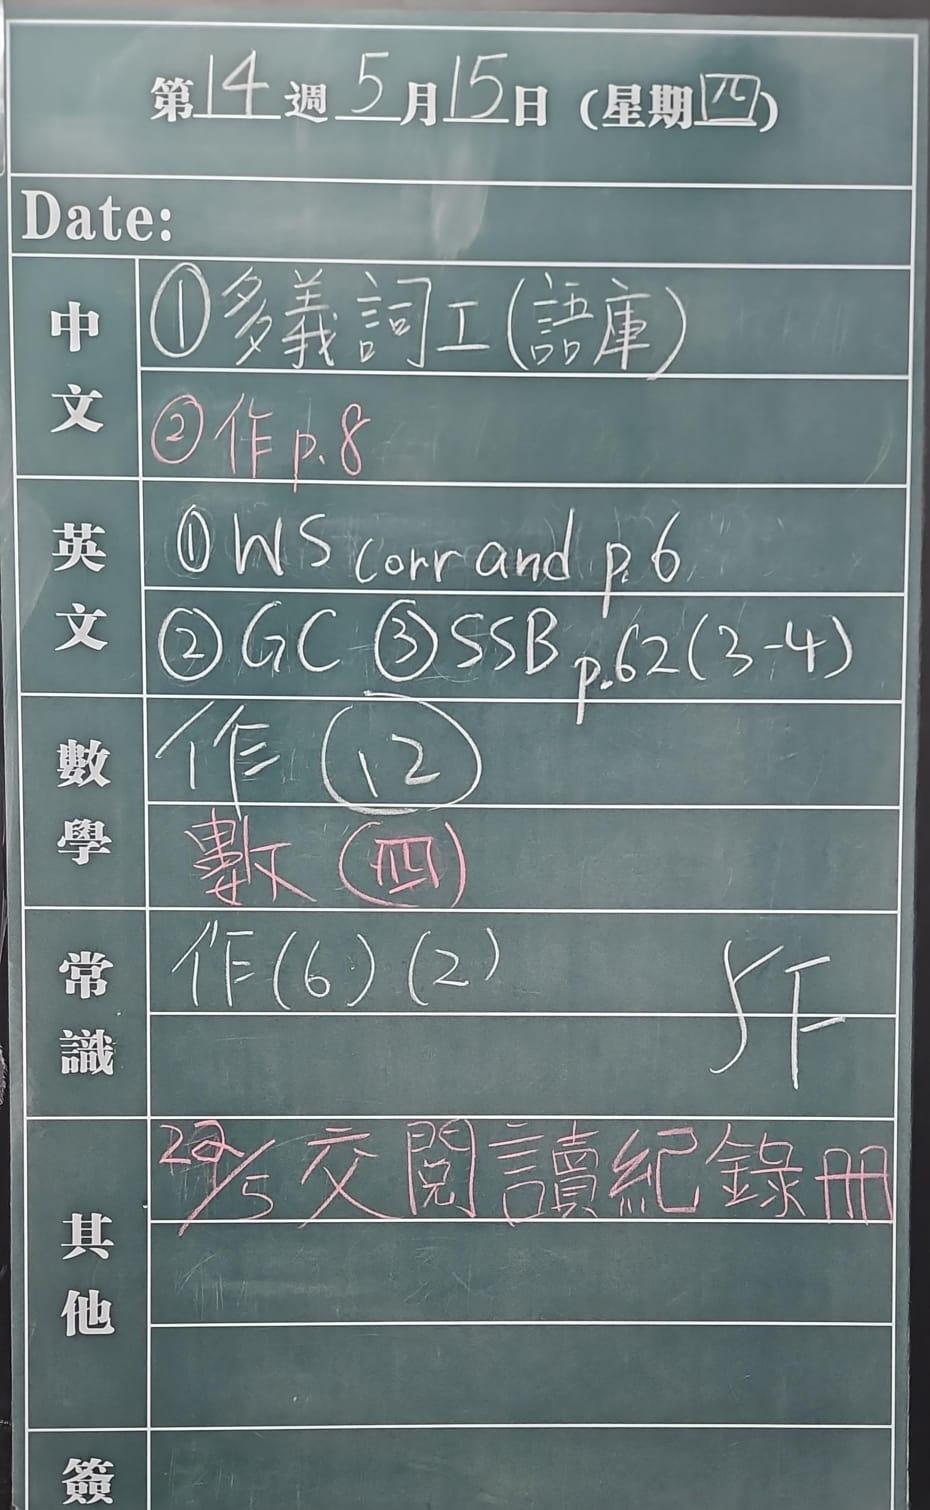 第14週5月15日(星期四)
Date:
中文
①多義詞工(語庫)
②作p.8
英文
①WS corr and p.6
②GC ③SSB p.62(3-4)
數學
作(12)
數(四)
常識
作(6)(2)
5F
其他
22/5交閱讀紀錄冊
簽